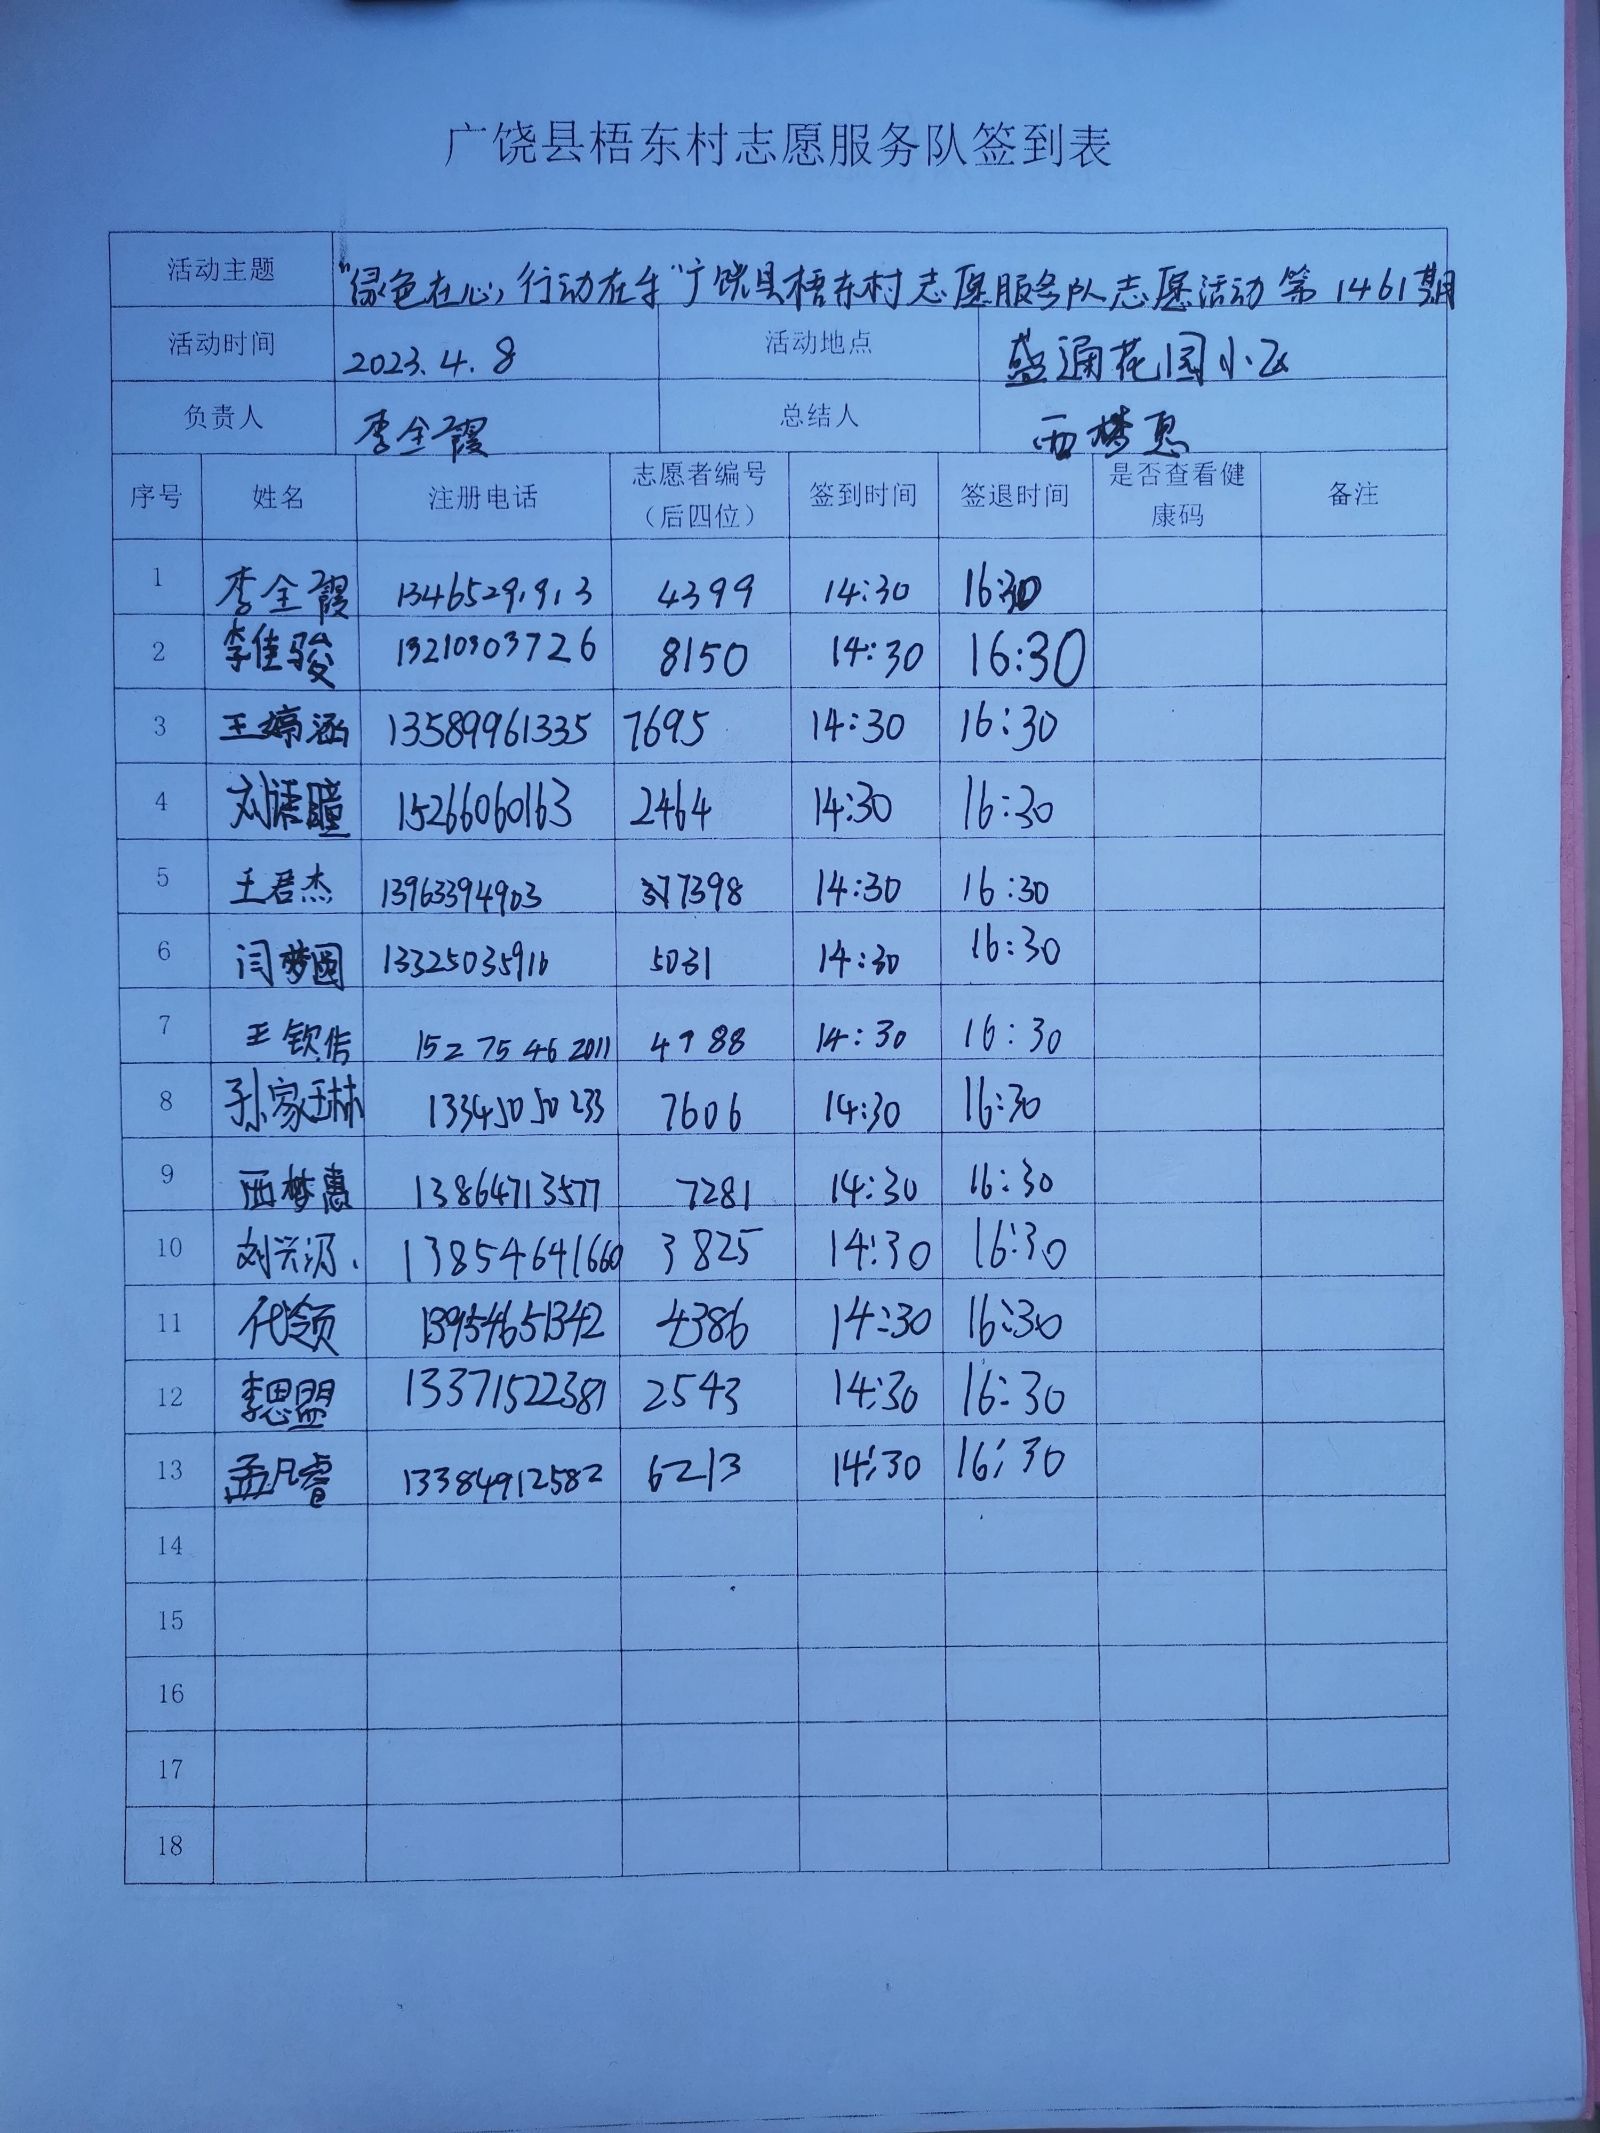 广饶县梧东村志愿服务队签到表
活动主题 "绿色在心,行动在手"广饶县梧东村志愿服务队志愿活动第1461期
活动时间 2023.4.8 活动地点 盛通花园小区
负责人 李全霞 总结人 西梦惠
序号 姓名 注册电话 志愿者编号（后四位） 签到时间 签退时间 是否查看健康码 备注
1 李全霞 13465299913 4399 14:30 16:30
2 李佳骏 13210303726 8150 14:30 16:30
3 王婷涵 13589961335 7695 14:30 16:30
4 刘语瞳 15266060163 2464 14:30 16:30
5 王君杰 13963394903 7398 14:30 16:30
6 闫梦圆 13325035910 5031 14:30 16:30
7 王钦传 15275462011 4988 14:30 16:30
8 孙家琳 13345050233 7606 14:30 16:30
9 西梦惠 13864713577 7281 14:30 16:30
10 刘兴 13854641660 3825 14:30 16:30
11 代领 13954651342 4386 14:30 16:30
12 李思盟 13371522381 2543 14:30 16:30
13 孟凡睿 13384912582 6213 14:30 16:30
14
15
16
17
18